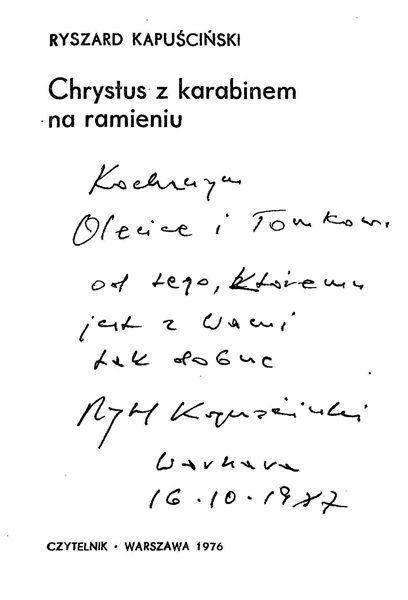 RYSZARD KAPUŚCIŃSKI
Chrystus z karabinem
na ramieniu
Kochanym
Olecce i Tomkowi
od tego, któremu
jest z Wami
tak dobrze
Rysz Kapuściński
Warszawa
16.10.1987
CZYTELNIK · WARSZAWA 1976